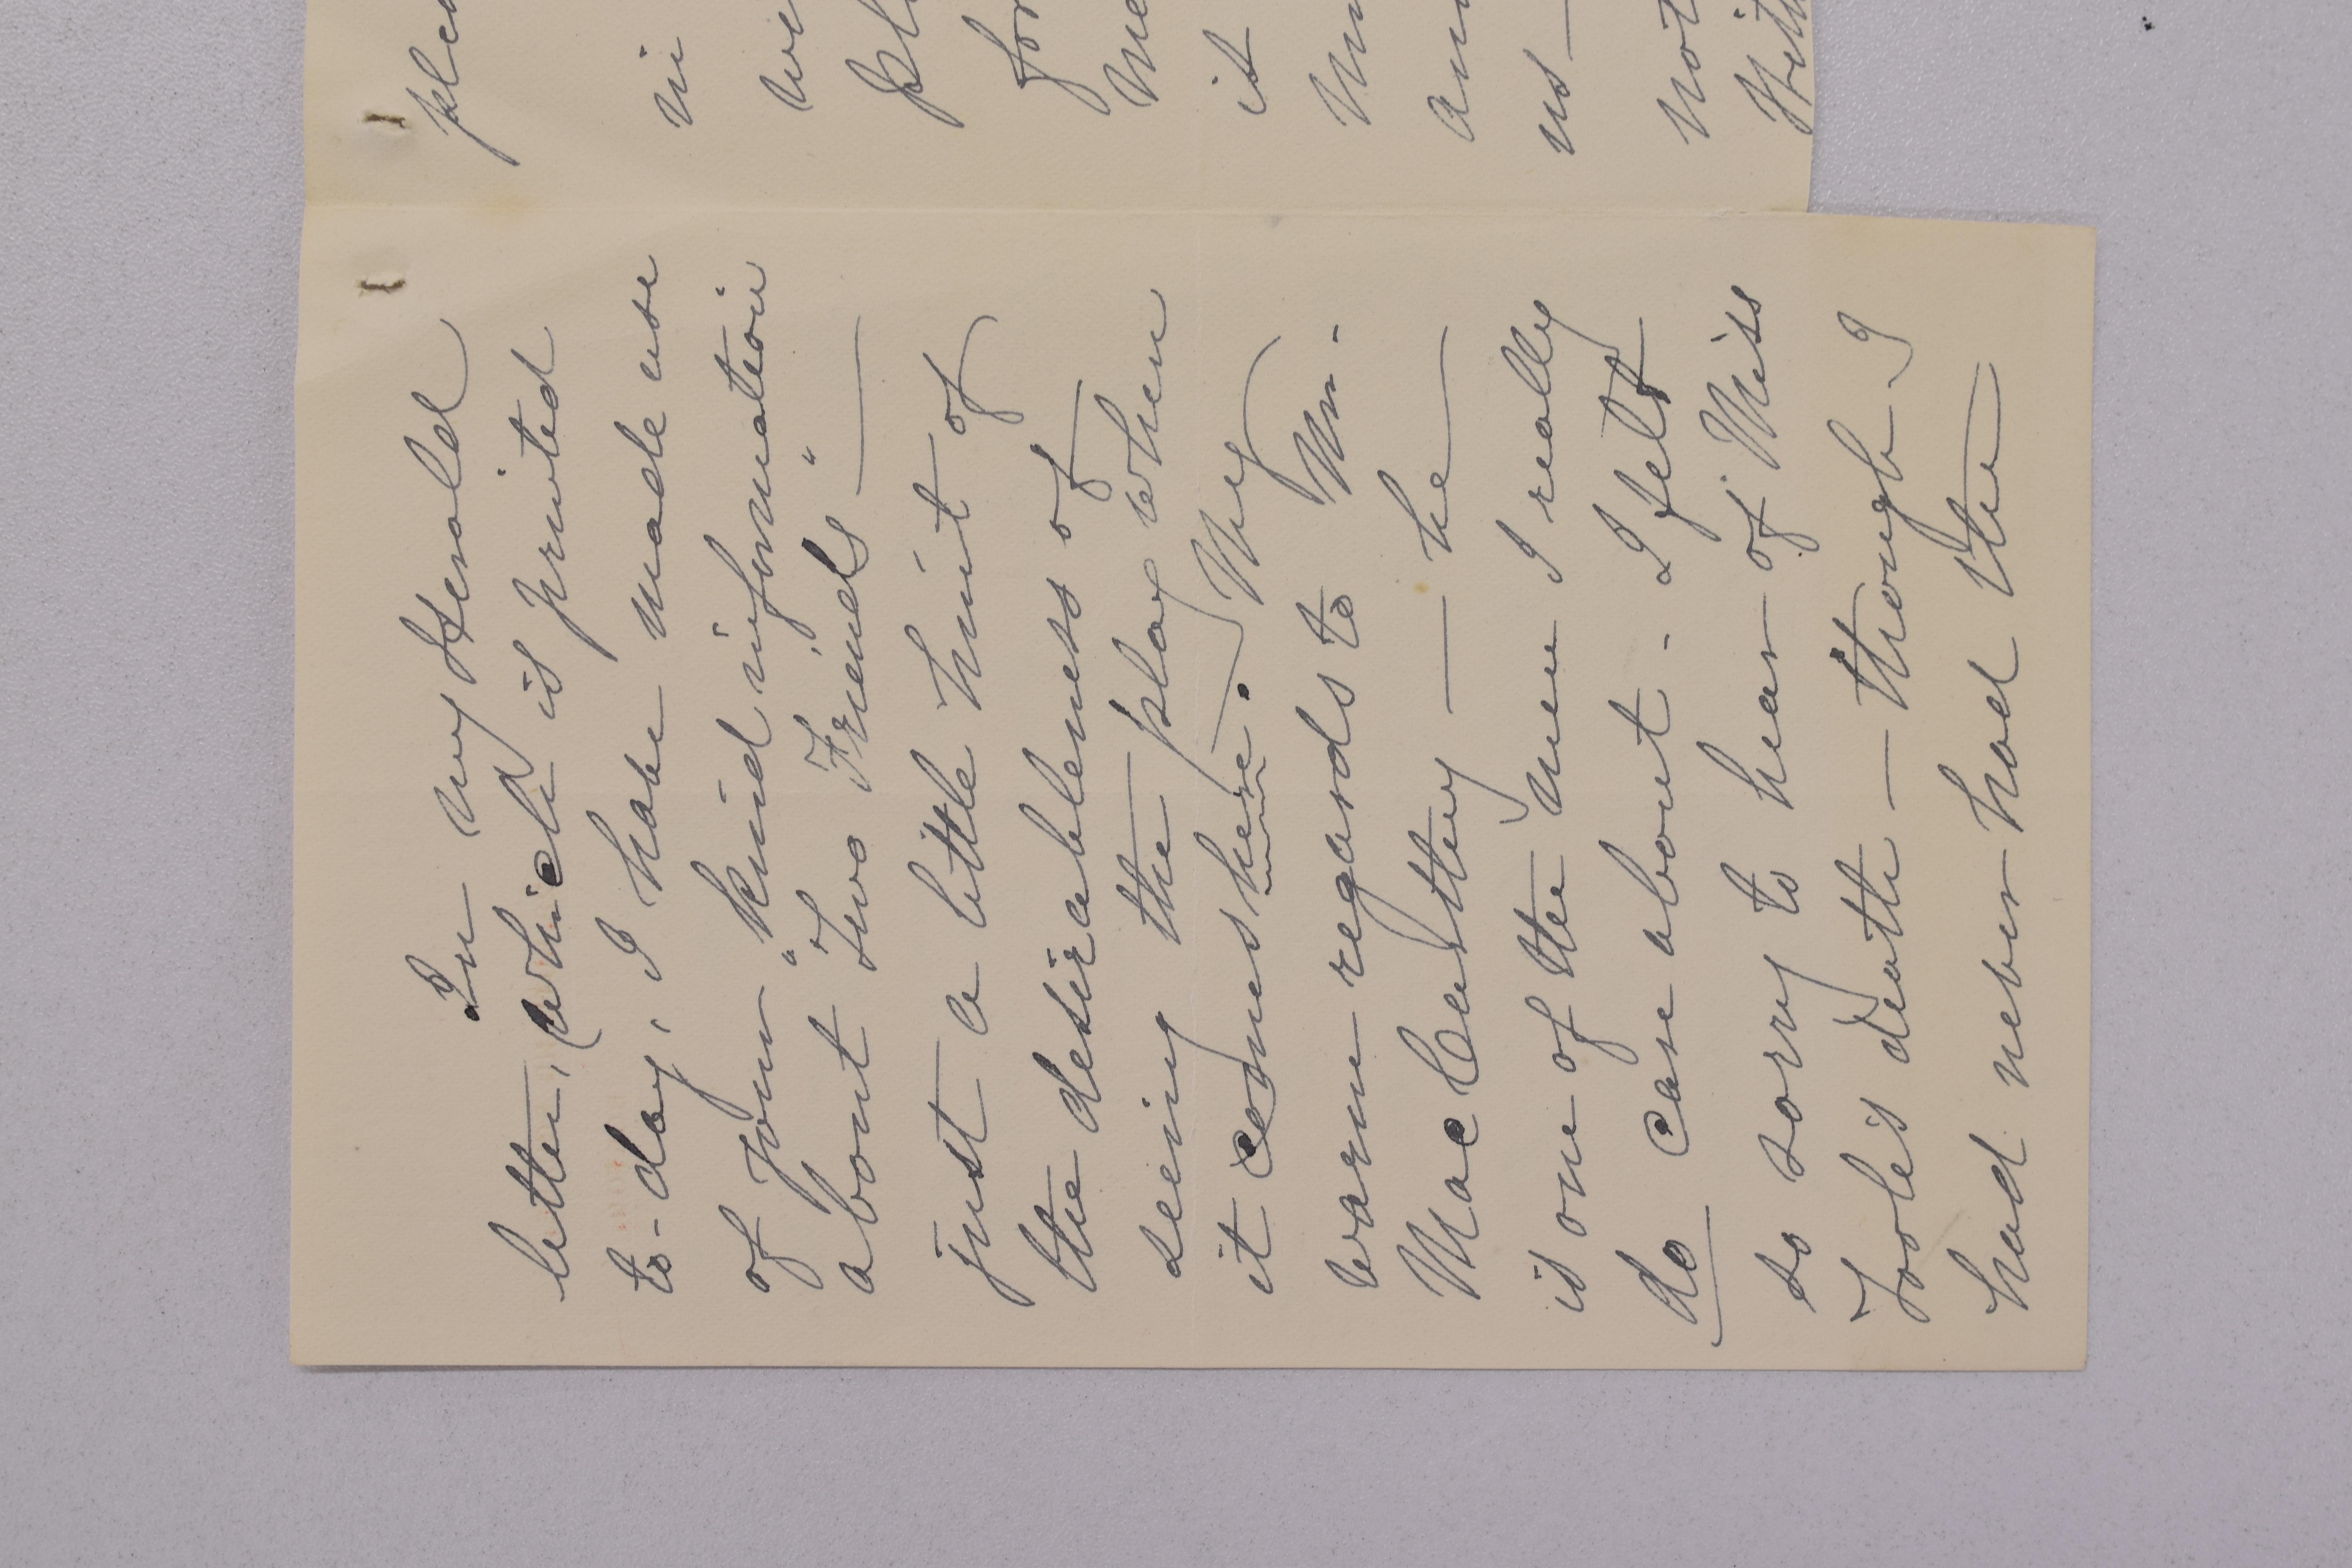 In my Herald
letter, which is printed
to-day, I have made use
of your kind information
about "Two Friends"—
just a little hint of
the desirableness of
seeing the play when
it comes here. My
warm regards to Mr.
MacCarthy — he
is one of the men I really
do care about. I felt
so sorry to hear of Miss
death — though I
had never had the
plea
in
wi
pl
for
me
it
us—
not